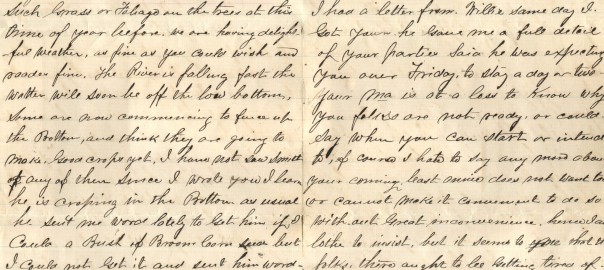 Such Grass or Foliage on the trees at this
time of year before. we are having delight
ful weather, as fine as you could wish and
roades fine, The River is falling fast the
watter will soon be off the low bottom,
some are now commencing to fence up
the Bottom, and think they are going to
make, Good crops yet, I have not saw
of any of them since I wrote you I learn
he is croping in the Bottom as usual
he sent me word lately to Get him if I
Could a Bush of Broom Corn seed but
I could not Get it and sent him word-
I had a letter from. Willie same day I
Got yours he Gave me a full detail
of your parties Said he was expecting
you over Friday, to stay a day or two
your Ma is at a loss to know why
you folks are not ready, or could
say when you can start or intend
to, of course I hate to say any more about
your coming, least annie does not want to
or cannot make it convenient to do so
without Great inconvenience. hence I am
lothe to insist, but it seems to me that the
folks, there ought to be Getting tired of